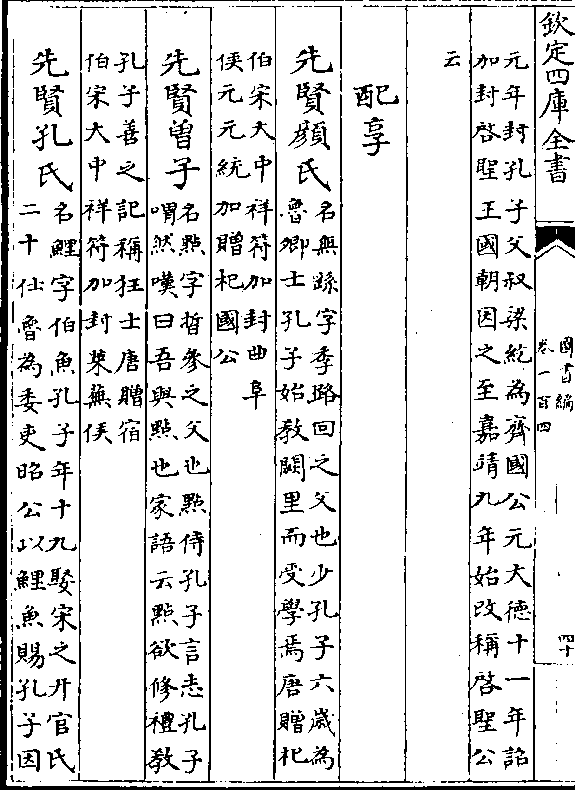 欽定四庫全書
圖書編
卷一百四
四十
元年封孔子父叔梁紇為齊國公元大德十一年詔
加封啓聖王國朝因之至嘉靖九年始改稱啓聖公
云
配享
先賢顔氏
名無繇字季路回之父也少孔子六歲為
魯卿士孔子始教闕里而受學焉唐贈杞
伯宋大中祥符加封曲阜
侯元元統加贈杞國公
先賢曽子
名㸃字晳參之父也㸃侍孔子言志孔子
喟然嘆曰吾與㸃也家語云㸃欲修禮教
孔子善之記稱狂士唐贈宿
伯宋大中祥符加封萊蕪侯
先賢孔氏
名鯉字伯魚孔子年十九娶宋之幵官氏
二十仕魯為委吏昭公以鯉魚賜孔子因